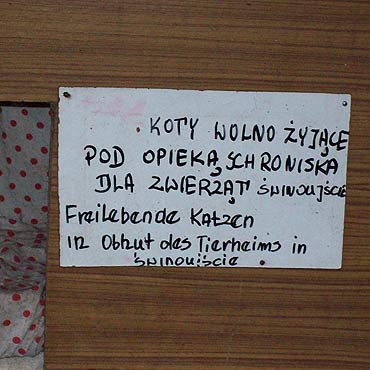 KOTY WOLNO ŻYJĄCE
POD OPIEKĄ SCHRONISKA
DLA ZWIERZĄT ŚWINOUJŚCIE
Freilebende Katzen
in Obhut des Tierheims in
ŚWINOUJŚCIE